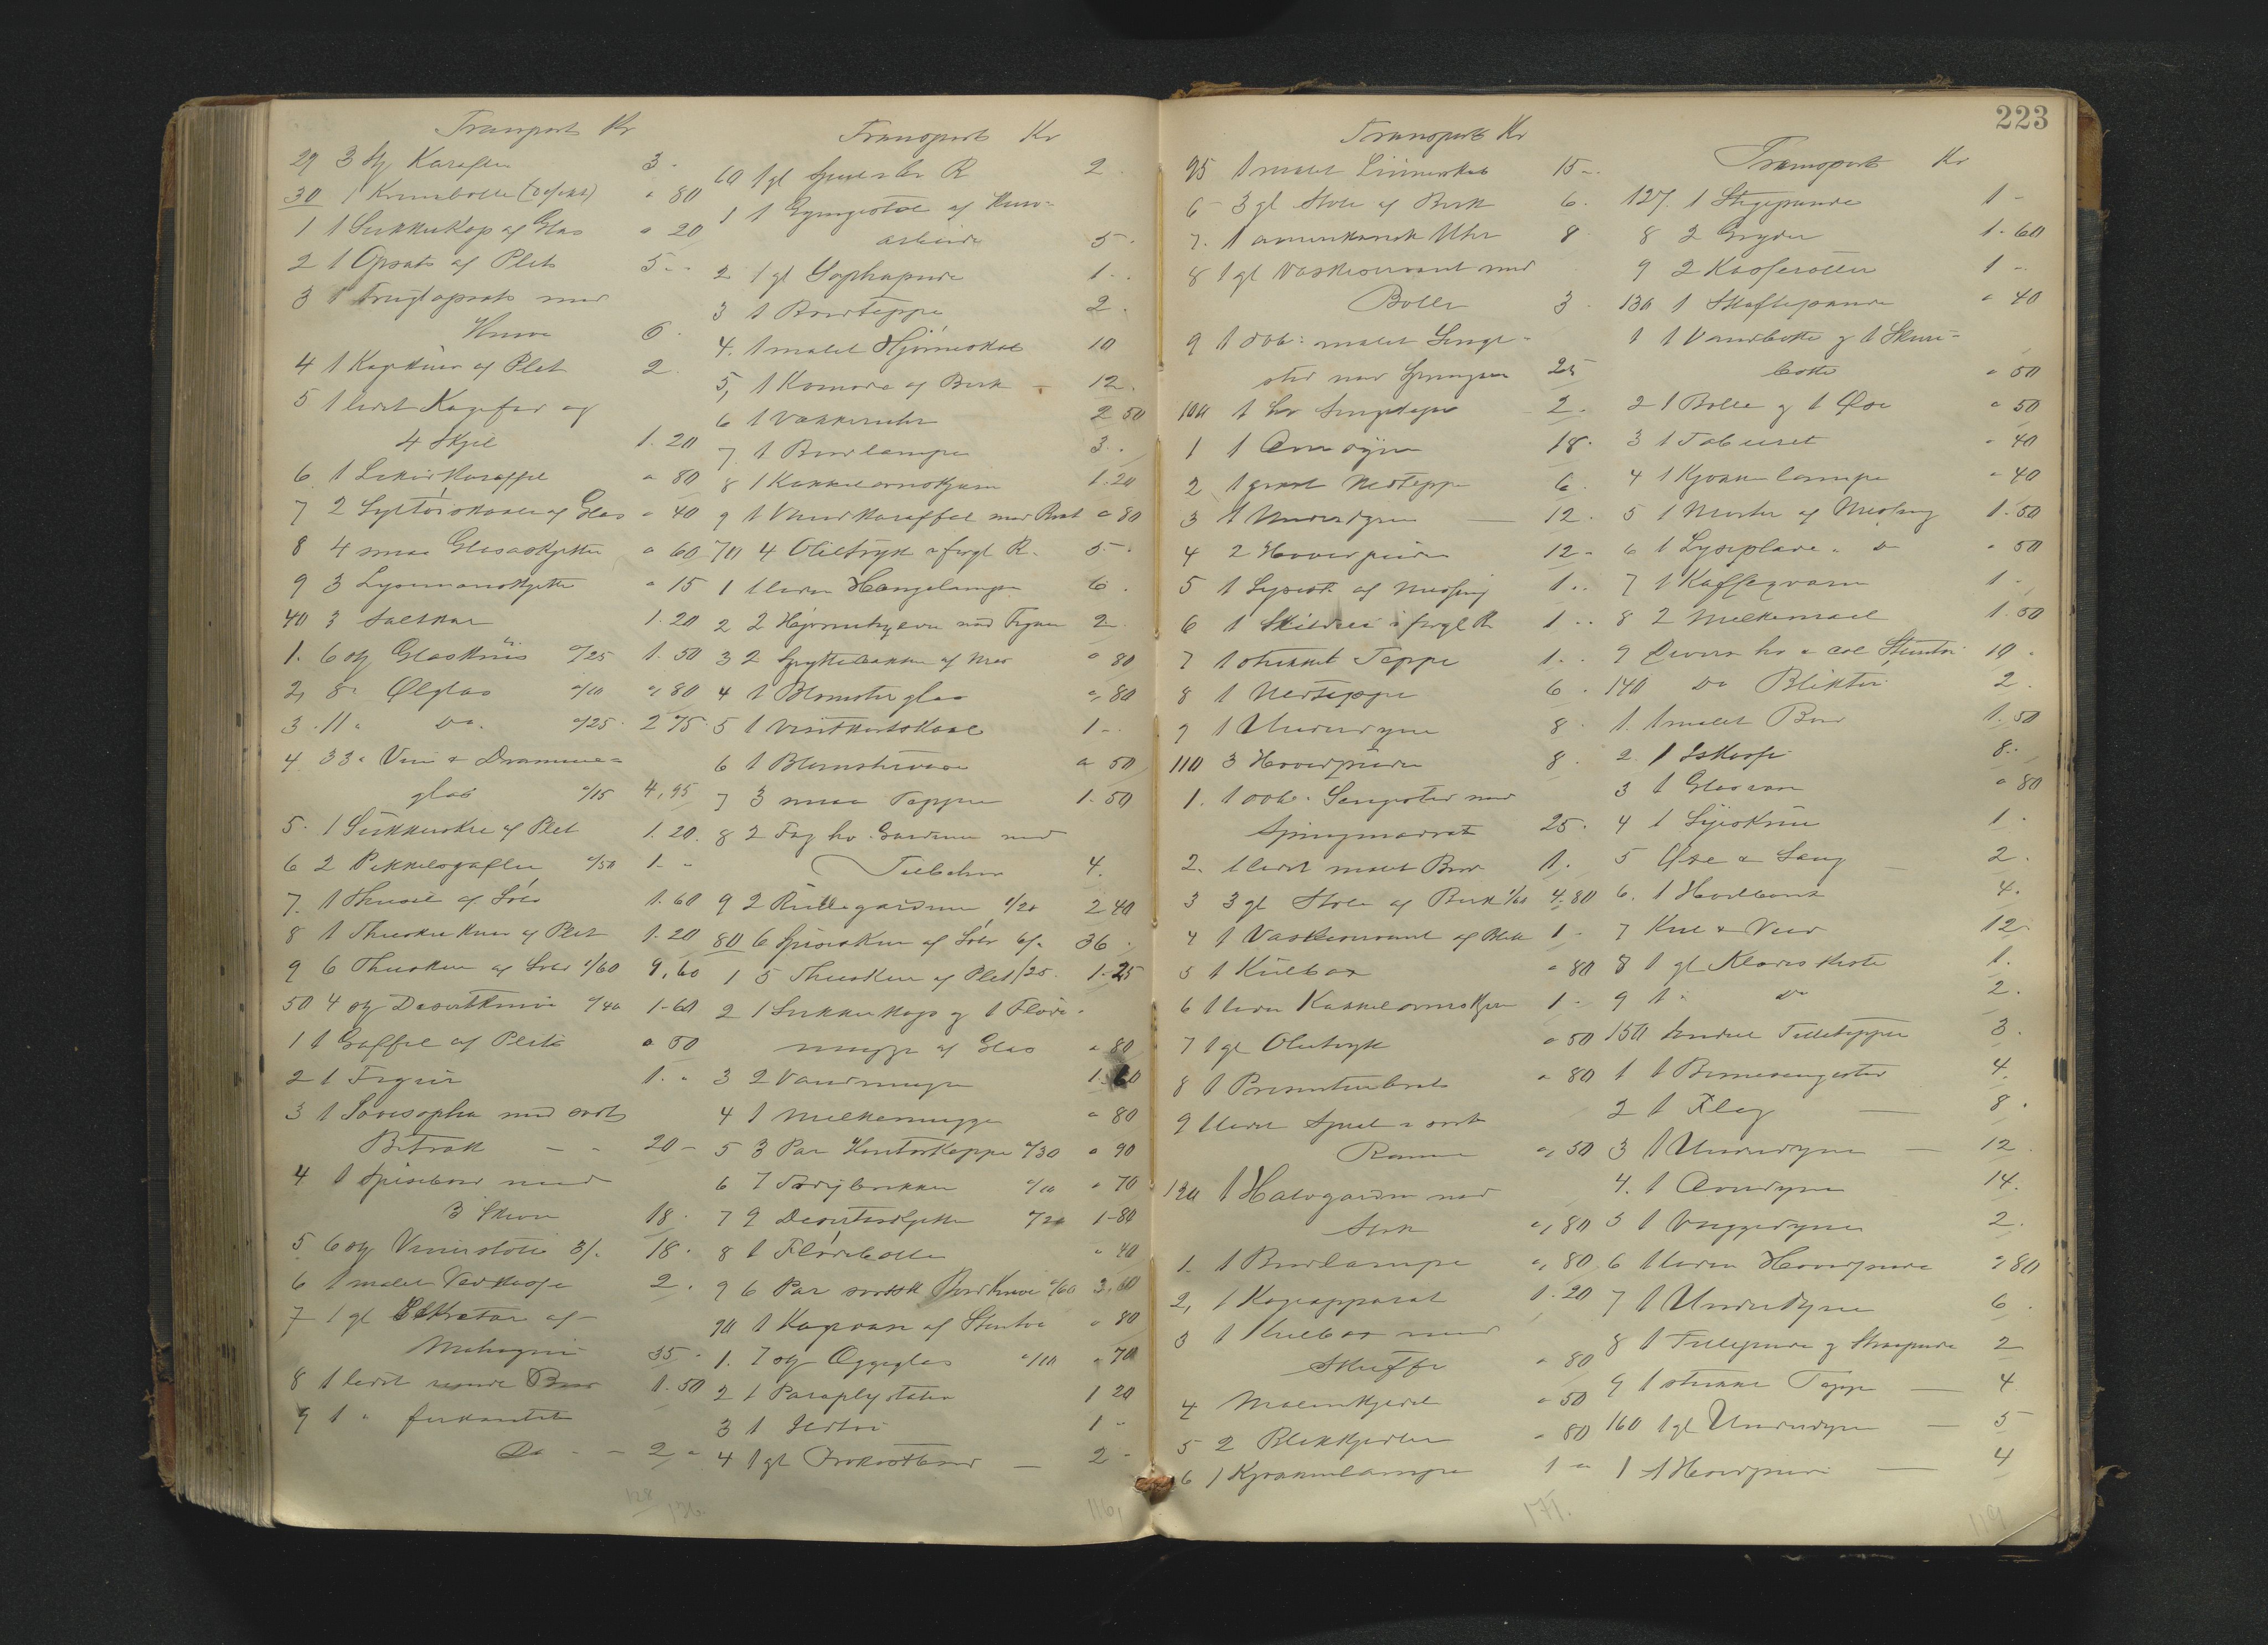 Transport Kr
29 3 St Karafler 3 -
30 1 Krusbolle (defekt) " 80
1 1 Sukkerkop af Glas " 20
2 1 Opsats af Plet 5 - -
3 1 Frugtopsats med
Knive 6 -
4 1 Kagekniv af Plet 2.
5 1 lidet Kagefad og
4 Skjel 1. 20
6 1 Likørkaraffel " 80
7 2 Syltøiskaale af Glas " 40
8 4 smaa Glasasketter " 60
9 3 Lysmansketter " 15
40 3 Saltkar 1. 20
1. 6 st Glasknive "/25 1. 50
2, 8 " Ølglas "/10 " 80
3. 11 " Do. "/25 2 75
4 33 " Vin & Dramme=
glas "/15 4,95
5. 1 Sukkerske af Plet 1. 20
6 2 Pikkelsgafler "/50 1. "
7. 1 Thesil af Sølv 1. 60
8 1 Theske Kniv af Plet 1. 20
9 6 Theskeer af Sølv 1/60 9,60
50 4 st Desertknive "/40 1-60
1 1 Gaffel af Plet " 50
2 1 Figur 1. "
3 1 Sovesopha med sort
Betræk - - 20 -
4 1 Spisebord med
3 Skuve 18 -
5 6 st Vinerstole 3/. 18 -
6 1 malet Vedkasse 2.
7 1 gl Sekretær af
Mahogni 35 "
8 1 lidet rundt Bord 1. 50
9 1 " firkantet
Do - - 2 "
128
136.
Transport Kr
60 1 gl Speil i br R 2.
1 1 Gyngestol af Kurv=
arbeide 5 -
2 1 gl Sophapude 1. -
3 1 Bordteppe 2.
4. 1 malet Hjørneskab 10
5, 1 Komode af Birk - 12.
6 1 Vækkeruhr 2 50
7 1 Bordlampe 3. -
8 1 Kakkelovnsskjærm 1. 20
9 1 Vandkaraffel med Bret " 80
70 4 Olietryk i forgl R. 5 -
1 1 liden Hængelampe 6.
2 2 Hjørnehylder med Figurer 2.
3 2 Spyttebakker af Træ " 80
4 1 Blomsterglas ", 80
5 1 Visitkortskaal 1 - -
6 1 Blomstervase " 50
7 3 smaa Tepper 1. 50
8 2 Fag hv. Gardiner med
Tilbehør 4.
9 2 Rullegardiner 1/20 2 40
80 6 Spiseskeer af Sølv 6/. 36.
1 5 Theskeer af Plet /25. 1. 25
2 1 Sukkerkop og 1 Fløde=
mugge af Glas " 80
3 2 Vandmugger 1. 60
4 1 Melkemugge " 80
5 3 Par Kontorkopper "/30 " 90
6 7 " "/10 " 70
7 9 Deserttallerker "/20 1-80
8 1 Flødebolle " 40
9 6 Par norsk Bordknive "/60 3,60
90 1 Kopvase af Stentøi " 80
1. 7 st Ægglas "/10 " 70
2 1 Paraplystativ 1 20
3 1 1 "
4 1 gl Frokostbord - 2 -
116,
Transport Kr
95 1 malet Linnedskab 15 - .
6 - 3 gl Stole af Birk 6.
7. 1 amerikansk Uhr 8
8 1 gl Vaskeservant med
Bolle 3
9 1 dob: malet Senge=
sted med 25
100 1 hv Sengeteppe 2.
1 1 Overdyne 18 -
2 1 grønt Vedteppe 6.
3 1 Underdyne - 12.
4 2 Hovedpuder 12 -
5 1 Lysest. af Messing 1. .
6 1 Skilderi i forgl R 1 - -
7 1 strikket Teppe 1 . .
8 1 Vedteppe 6.
9 1 Underdyne 8 -
110 3 Hovedpuder 8.
1. 1 dob. Sengested med
Springmadrat 25.
2. 1 lidet malet Bord 1.
3 3 gl Stole af Birk 1/60 4.80
4 1 Vaskeservant af Blik 1 -
5 1 Kulbox " 80
6 1 liden Kakkelovnsskjærm 1 -
7 1 gl Olietryk " 50
8 1 Presenterbret " 80
9 1 lidet Speil i sort
Ramme ", 50
120 1 Halvgardin med
Stok ", 80
1. 1 Bordlampe ", 80
2, 1 Kogeapparat 1. 20
3 1 Kulbox med
Skuffe " 80
4 " 50
5 2 Blikkjedler " 80
6 1 Kjøkkenlampe 1 "
171.
223
Transport Kr
127. 1 Stegepande 1 -
8 2 Gryder 1. 60
9 2 Kasseroller 1 -
130 1 Skaftepande " 40
1 1 Vandbøtte og 1 Skure=
bøtte " 50
2 1 Bolle og 1 Øse " 50
3 1 Taburet " 40
4 1 Kjøkkenlampe " 40
5 1 Morter af Messing 1. 50
6 1 Lyseplade " Do " 50
7 1 Kaffeqværn 1 -
8 2 Melkemaal 1. 50
9 Divers hv & col Stentøi 10 "
140 Do Bliktøi 2.
1. 1 malet Bord 1. 50
2. 1 Iskasse 8. .
3 1 Glasvase " 80
4 1 Syskrin 1 -
5 Øxe & Saug 2.
6. 1 Høvlbænk 4.
7 Kul & Ved 12.
8 1 gl Klædeskiste 1.
9 1 " Do 2.
150 Endel Filleteppper 3.
1 1 Børnesengested 4.
2 1 Flag - 8.
3 1 Underdyne - 12.
4. 1 Overdyne 14.
5 1 Vuggedyne 2.
6 1 liden Hovedpude " 80
7 1 Underdyne 6.
8 1 Fillepude og Skraapude 2
9 1 strikket Teppe - 4
160 1 gl Underdyne - 5
1 1 Hovedpude - 4
119